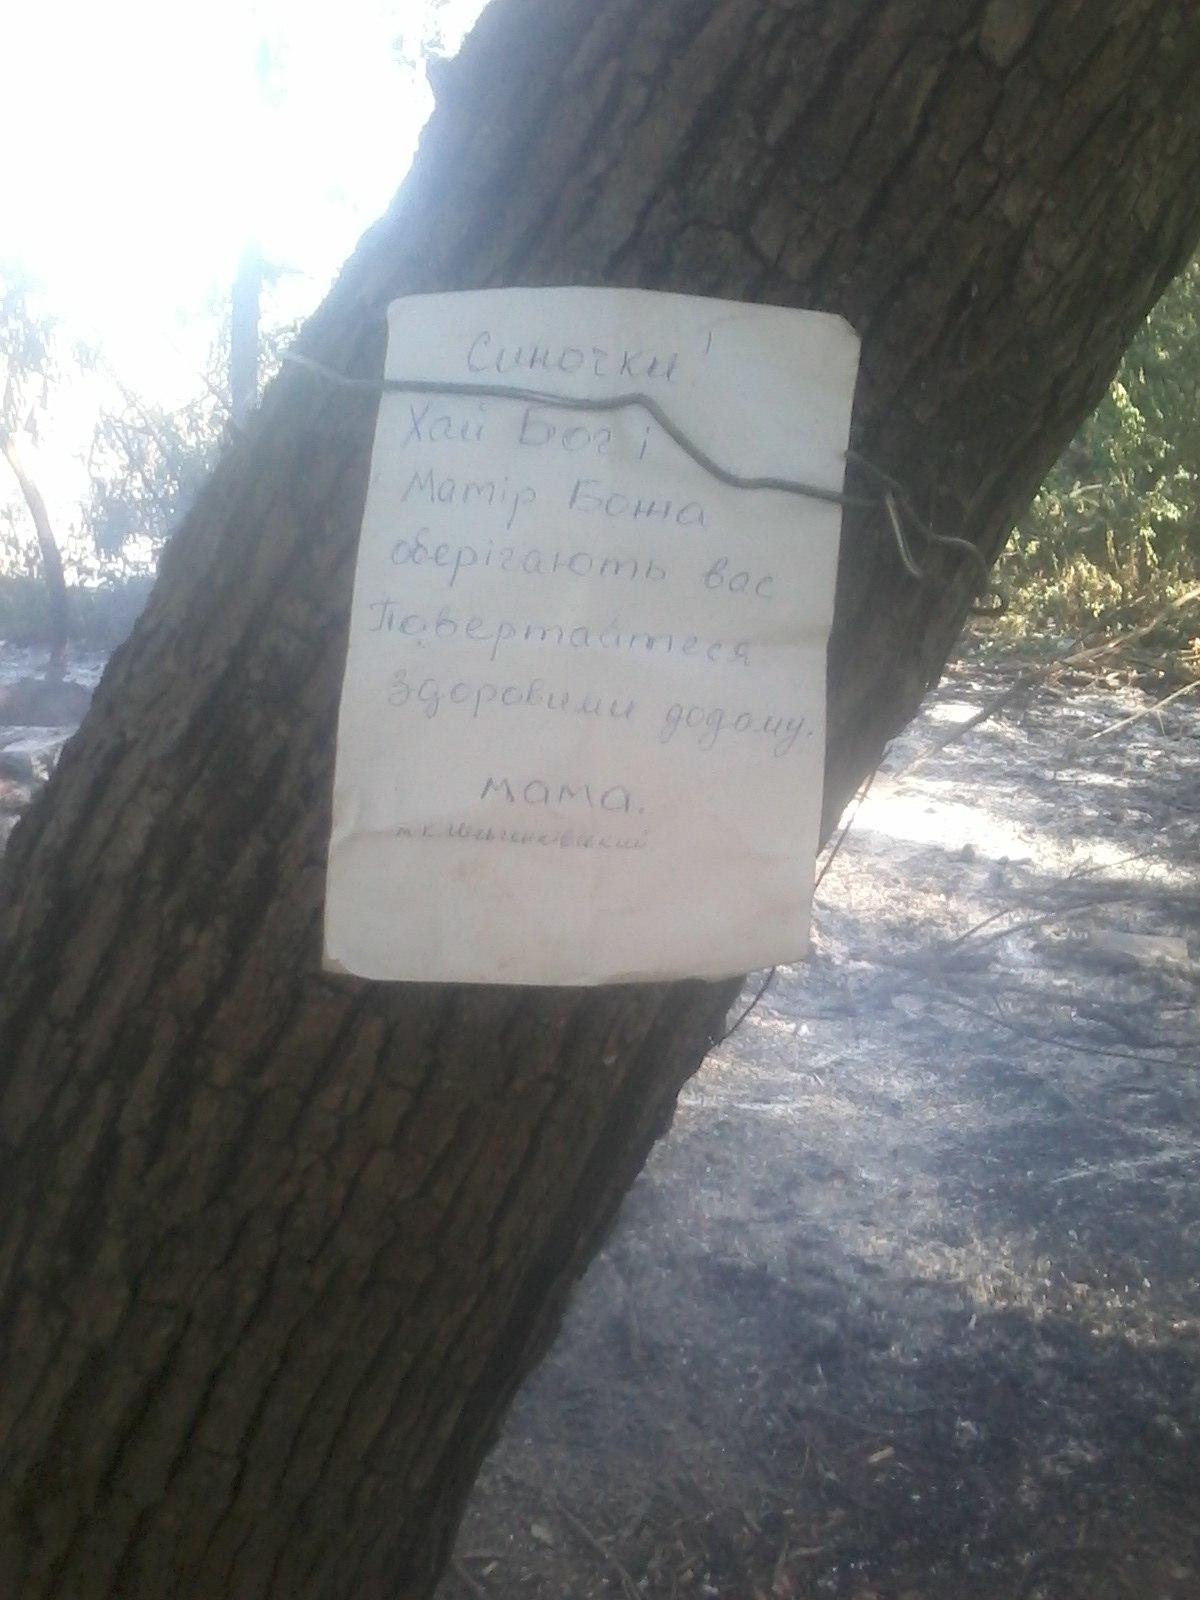 Синочки!
Хай Бог і
Матір Божа
оберігають вас
Повертайтеся
здоровими додому.
мама.